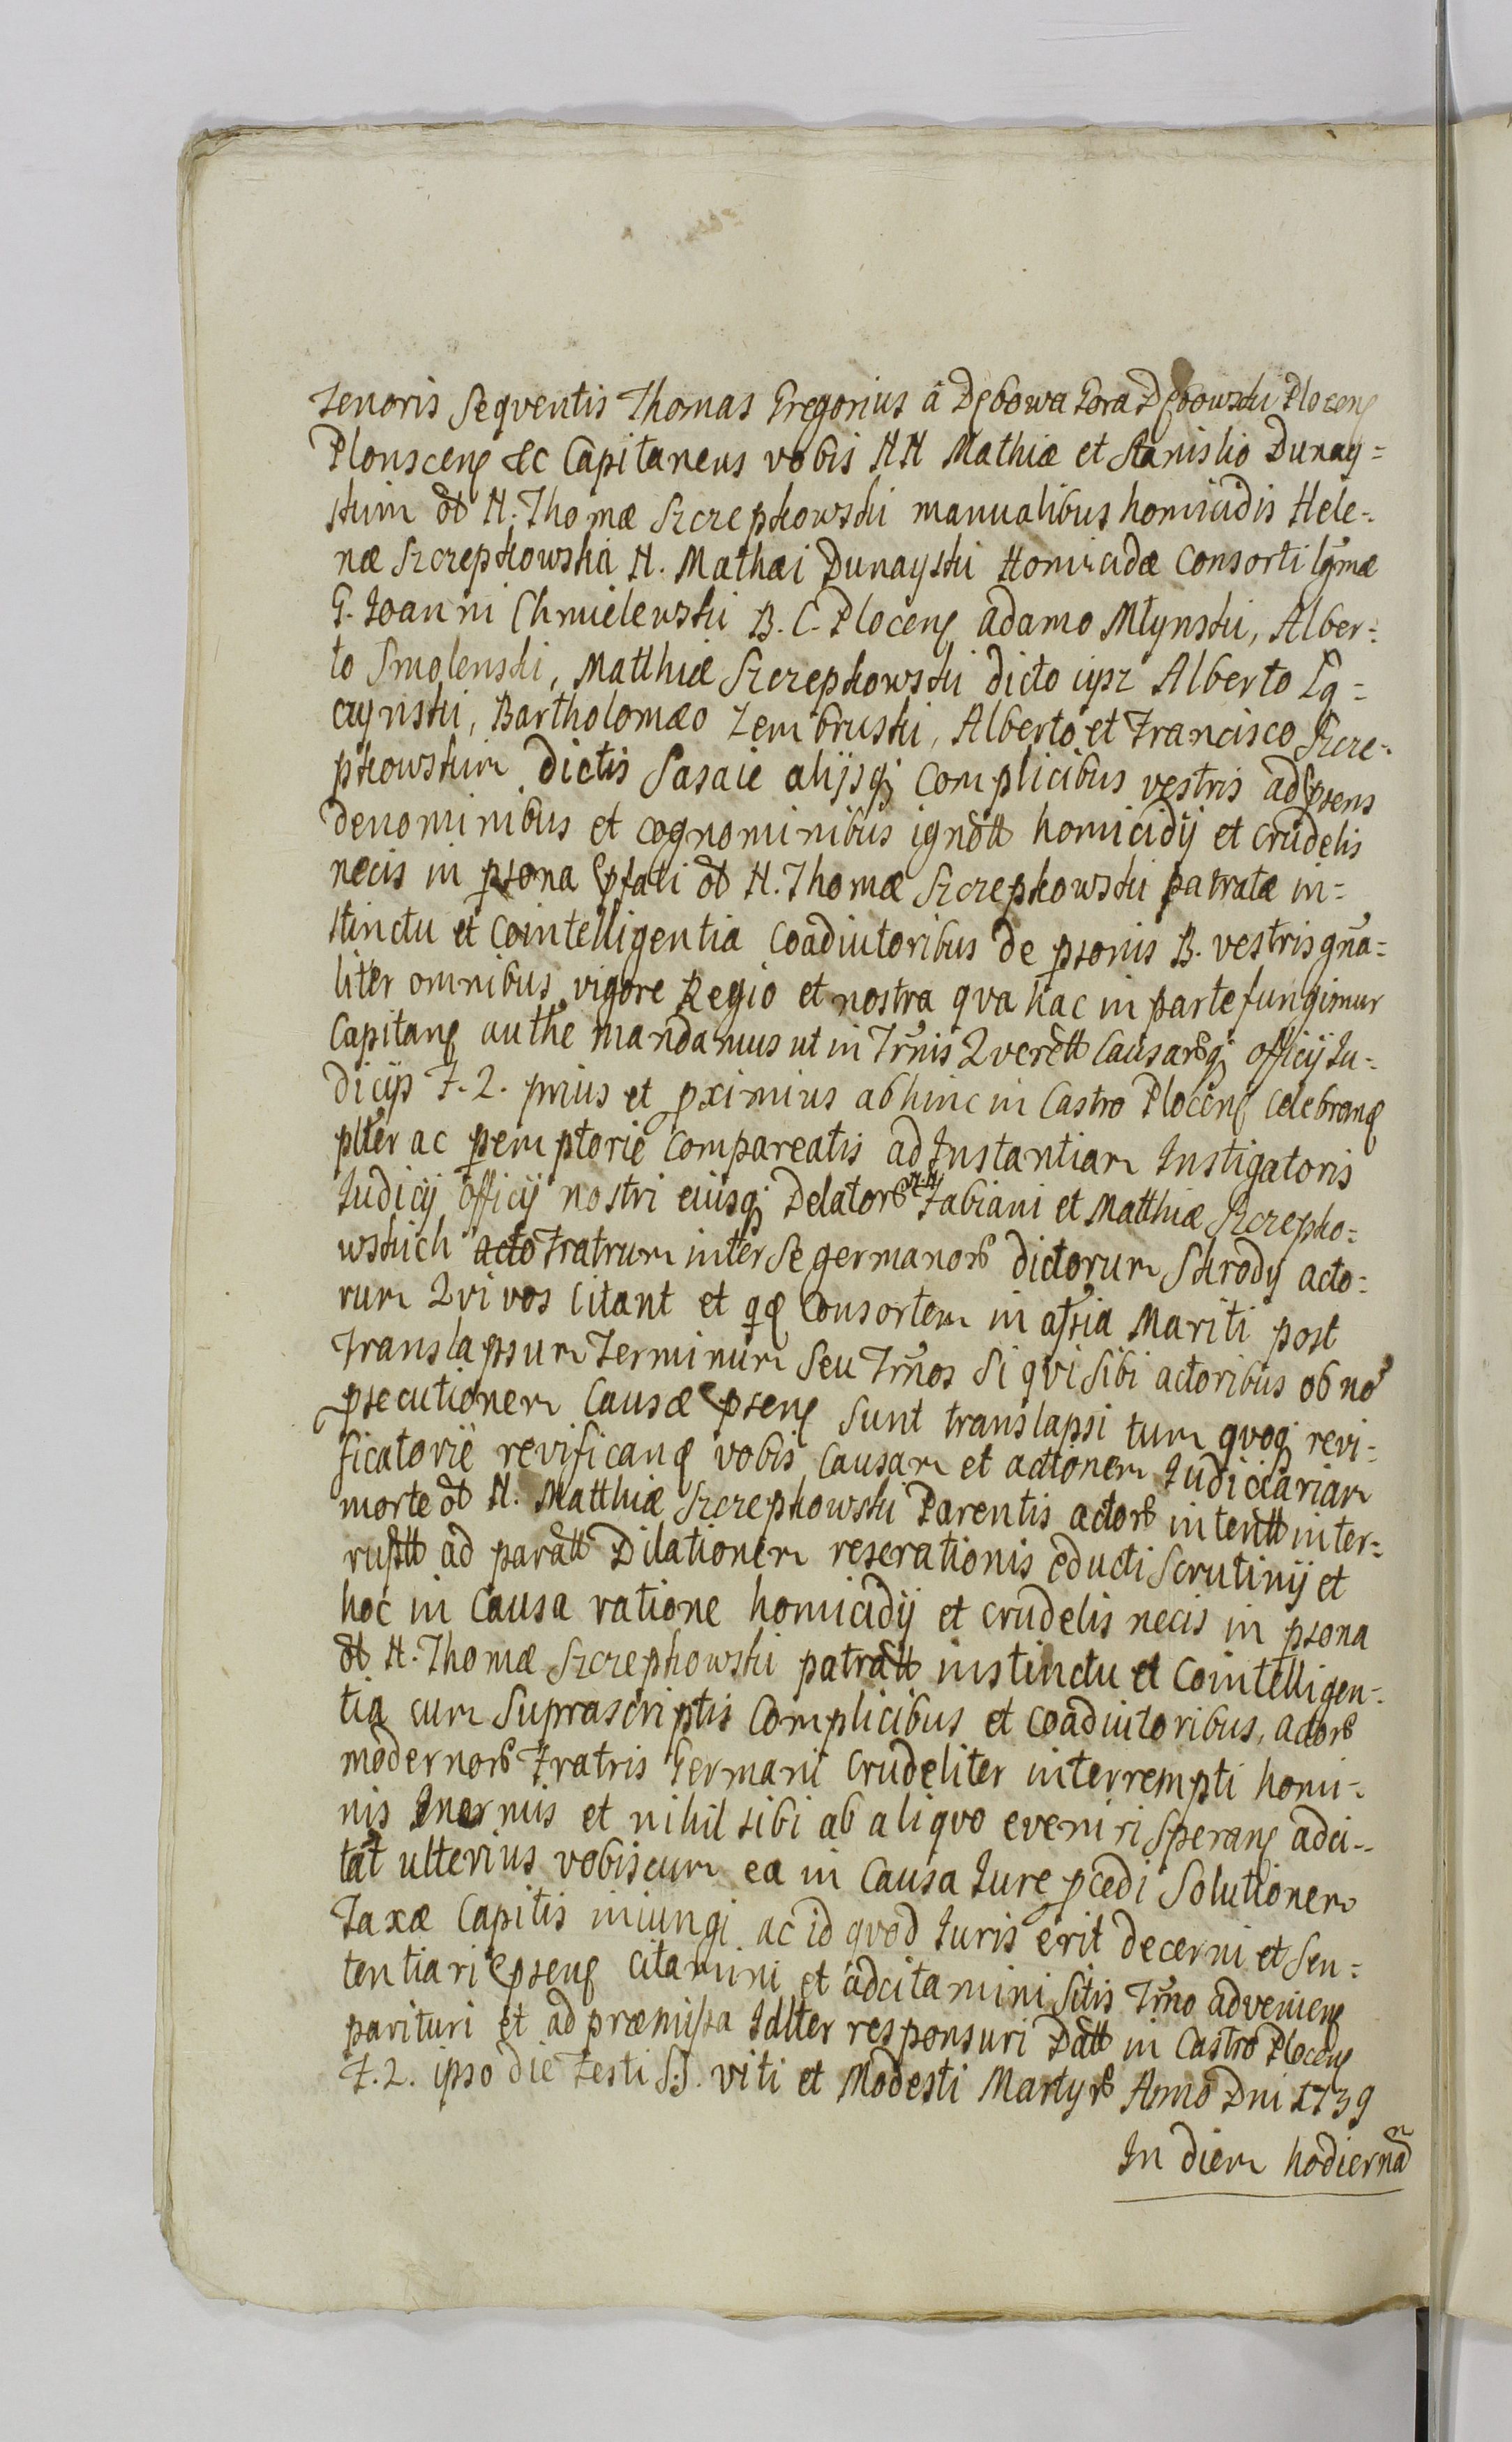 Tenoris Seqventis Thomas Gregorius á Dębowa Gora Dębowski Plocen
Plonscen &c Capitaneus vobis NN Mathiæ et Stanislao Dunay=
skim ol N. Thomæ Szczepkowski manualibus homicidis Hele=
næ Szczepkowska N. Mathæi Dunayski Homicidæ Consorti lgmæ
G. Joanni Chmielewski B. C. Plocen Adamo Młynski, Alber=
to Smolenski, Matthiæ Szczepkowski dicto Alberto Lą=
czynski, Bartholomæo Zembruski, Alberto et Francisco Szcze=
pkowskim dictis Sasaie alijsq Complicibus vestris ad psens
de nominibus et cognominibus ignott homicidij et crudelis
necis in psona pfati ol N. Thomæ Szczepkowski patratæ in=
stinctu et Cointelligentia Coadiutoribus de psonis B. vestris gna=
liter omnibus vigore Regio et nostra qva hac in parte fungimur
Capitan authe mandamus ut in Trnis Qverett Causarq officij Ju=
dicijs F. 2. prius et pximius abhinc in Castro Plocen Celebrand
plter ac peremptorie Compareatis ad Instantiam Instigatoris
Judicij officij nostri eiusq Delator NN Fabiani et Matthiæ Szczepko=
wskich acto Fratrum inter se germanor dictorum Skrody acto=
rum Qvi vos Citant et qd Consortem in assia Mariti post
Translapsum Terminum seu Trnos si qvi sibi actoribus ob no
psecutionem Causæ psen sunt translapsi tum qvoq revi=
ficatorie revificand vobis Causam et actionem Judiciariam
morte ol N. Matthiæ Szczepkowski Parentis actor intentt inter=
ruptt ad paratt Dilationem reserationis educti Scrutinij et
hoc in Causa ratione homicidij et crudelis necis in psona
ol N. Thomæ Szczepkowski patratt instinctu et Cointelligen=
tia cum Suprascriptis Complicibus et coadiutoribus, actor
modernor Fratris Germani Crudeliter interrempti homi=
nis Inermis et nihil sibi ab aliqvo eveniri Speran adci=
tat ulterius vobiscum ea in Causa Jure pcedi Solutionem
Taxæ Capitis iniungi ac id qvod Juris erit decerni et Sen=
tentiari psen citamini et adcitamini Sitis Trno advenien
parituri et ad præmissa Jdlter responsuri Datt in Castro Plocen
F. 2. ipso die Festi S:S. viti et Modesti Martyr Anno Dni 1739
In diem hodierna